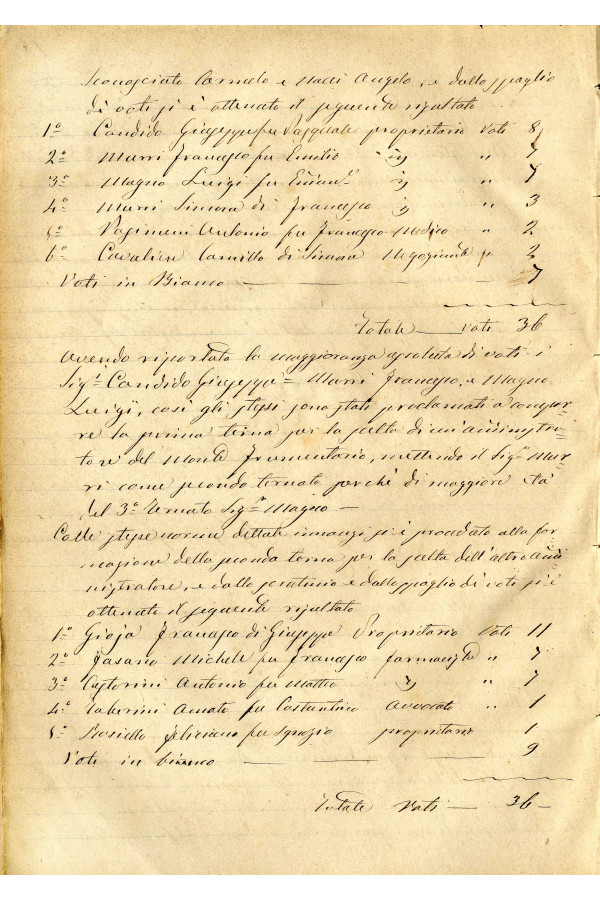 Sconosciuto Carmelo e Macci Angelo, e dallo spoglio
di voti si è ottenuto il seguente risultato
1º Candido Giuseppe fu Pasquale proprietario Voti 8
2º Murri Francesco fu Emilio id " 7
3º Magno Luigi fu Eman.l id " 7
4º Murri Simone di Francesco id " 3
5º Antonio fu Francesco Medico " 2
6º Cavaliere Camillo di Simone Negoziante " 2
Voti in Bianco — — — 7
Totale — voti 36
Avendo riportato la maggioranza assoluta di voti i
Sig.i Candido Giuseppe = Murri Francesco, e Magno
Luigi, così gli stessi sono stati proclamati a compor-
re la prima terna per la scelta di un'amministra-
tore del Monte frumentario, mettendo il Sig.r Mur-
ri come secondo ternato perchè di maggiore età
del 3º ternato Sig.r Magno —
Colle stesse norme dettate innanzi si è proceduto alla for
mazione della seconda terna per la scelta dell'altro ammi
nistratore, e dallo scrutinio e dallo spoglio di voti si è
ottenuto il seguente risultato
1º Gioja Francesco di Giuseppe Proprietario Voti 11
2º Fasano Michele fu Francesco farmacista " 7
3º Antonio fu Matteo id " 7
4º Amato fu Costantino Avvocato " 1
5º Feliciano fu Ignazio proprietario 1
Voti in bianco — — — 9
Totale Voti — 36 —